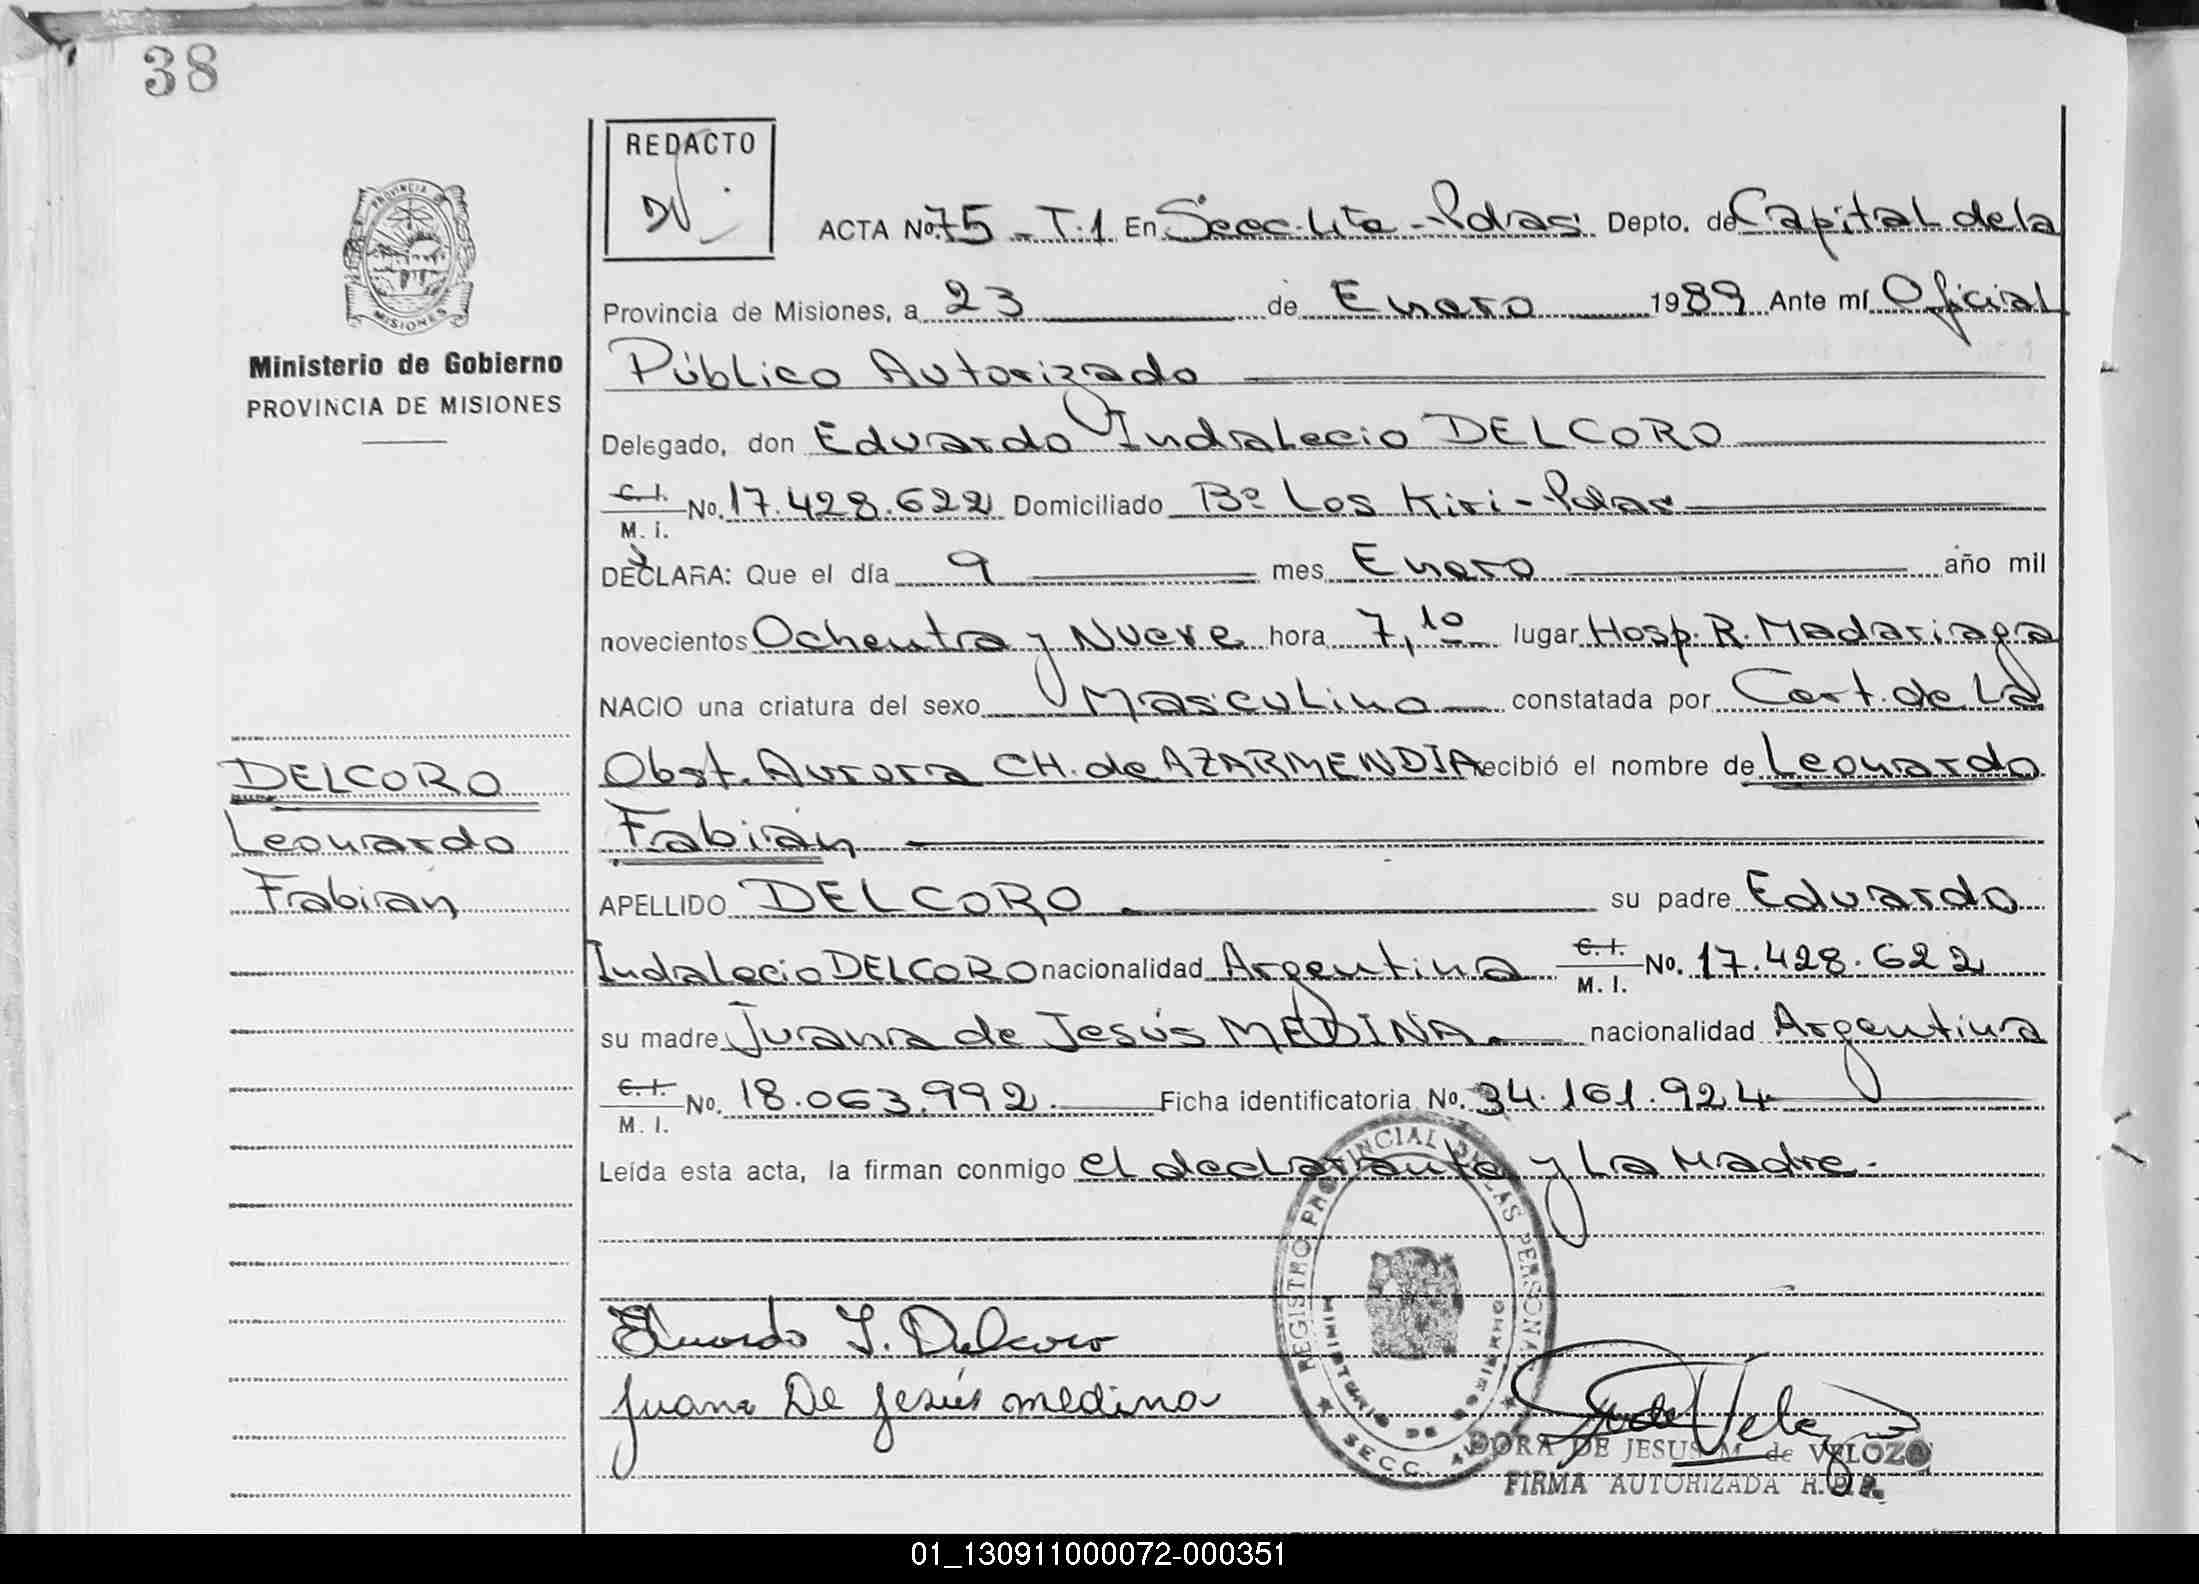 38
REDACTO
PROVINCIA DE
MISIONES
Ministerio de Gobierno
PROVINCIA DE MISIONES
ACTA No. 75 - T.1 En Secc. 4ta - Pdas. Depto. de Capital de la
Provincia de Misiones, a 23 de Enero 1989 Ante mí Oficial
Público Autorizado
Delegado, don Eduardo Indalecio DELCORO
C. I.
M. I. No. 17.428.622 Domiciliado Bº Los Kiri - Pdas
DECLARA: Que el día 9 mes Enero año mil
novecientos Ochenta y Nueve hora 7,10 lugar Hosp. R. Madariaga
NACIO una criatura del sexo Masculino constatada por Cert. de La
Obst. Aurora CH. de AZARMENDIA recibió el nombre de Leonardo
Fabián
APELLIDO DELCORO su padre Eduardo
Indalecio DELCORO nacionalidad Argentina C. I. M. I. No. 17.428.622
su madre Juana de Jesús MEDINA. nacionalidad Argentina
C. I.
M. I. No. 18.063.992. Ficha identificatoria No. 34.161.924
Leída esta acta, la firman conmigo el declarante y La Madre.
DELCORO
Leonardo
Fabián
Eduardo I. Delcoro
Juana De Jesús medina
REGISTRO PROVINCIAL DE LAS PERSONAS
MINISTERIO DE GOBIERNO
SECC. 4
DORA DE JESUS M. de VELOZO
FIRMA AUTORIZADA R.P.P.
01_130911000072-000351